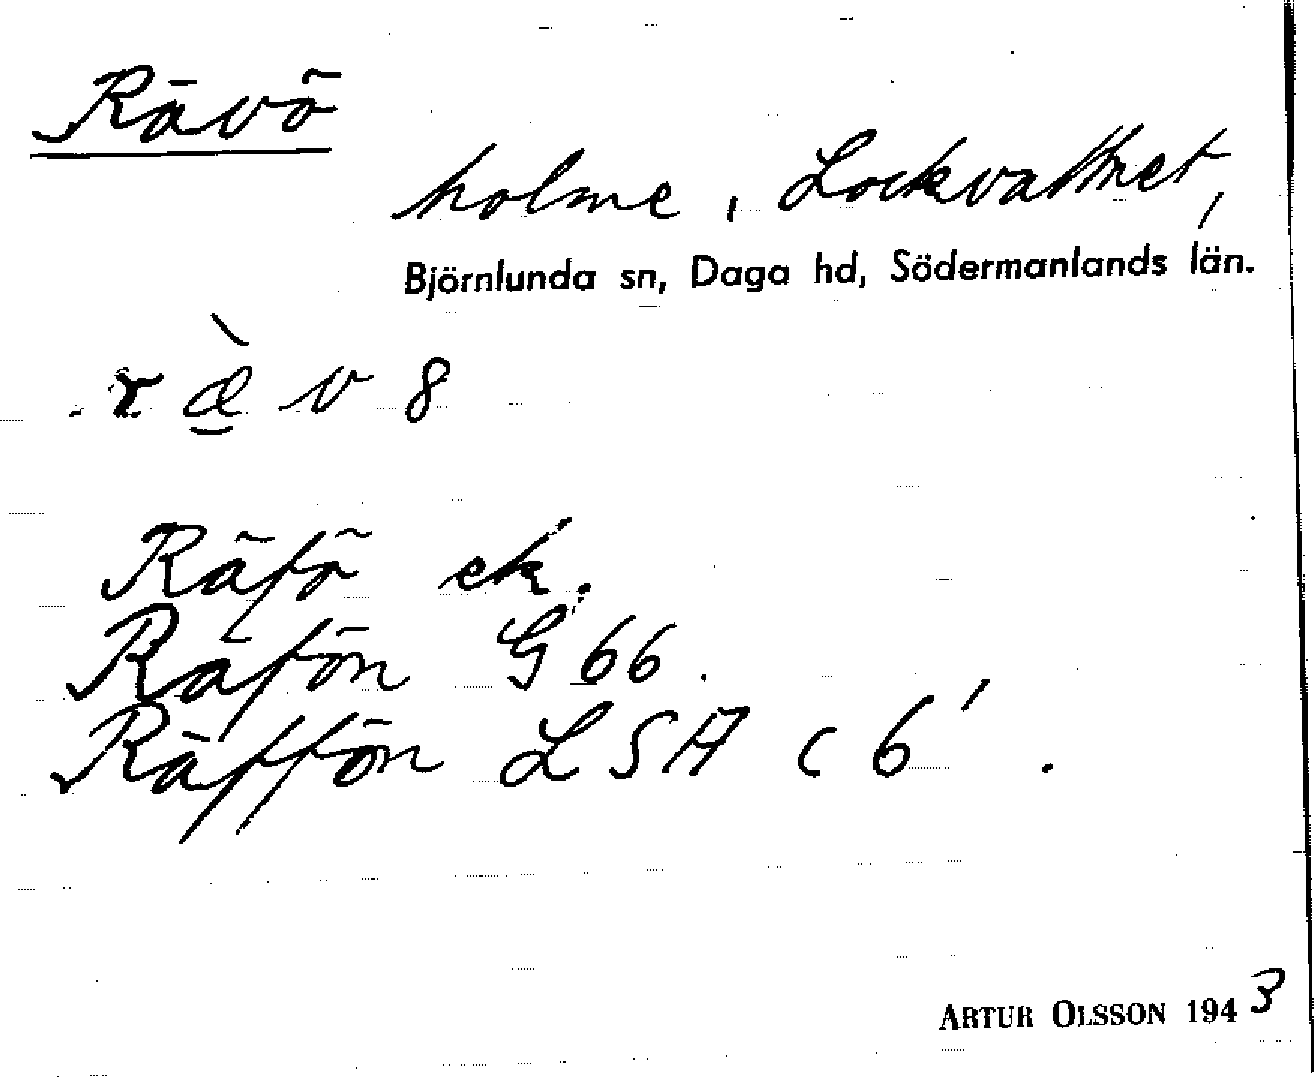 Rävö
holme i Lockvattnet,
Björnlunda sn, Daga hd, Södermanlands län.
ræ̀v8
Räfö ek.
Räfön G 66.
Räffön LSA C 6'.
ARTUR OLSSON 1943